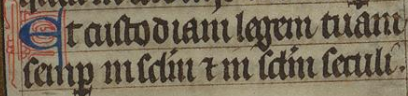 Et custodiam legem tuam
semp in sclm ⁊ in sclm seculi.